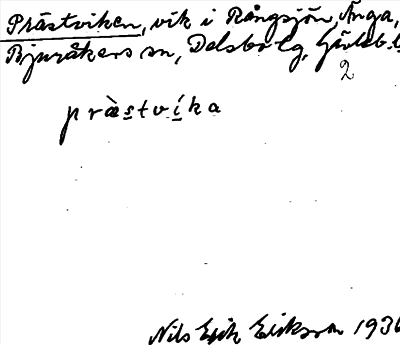 Prästviken, vik i Rångsjön, Änga,
Bjuråkers sn, Delsbo tg, Gävleb. l.
2
pràstvíka
Nils Erik Eriksson 1936